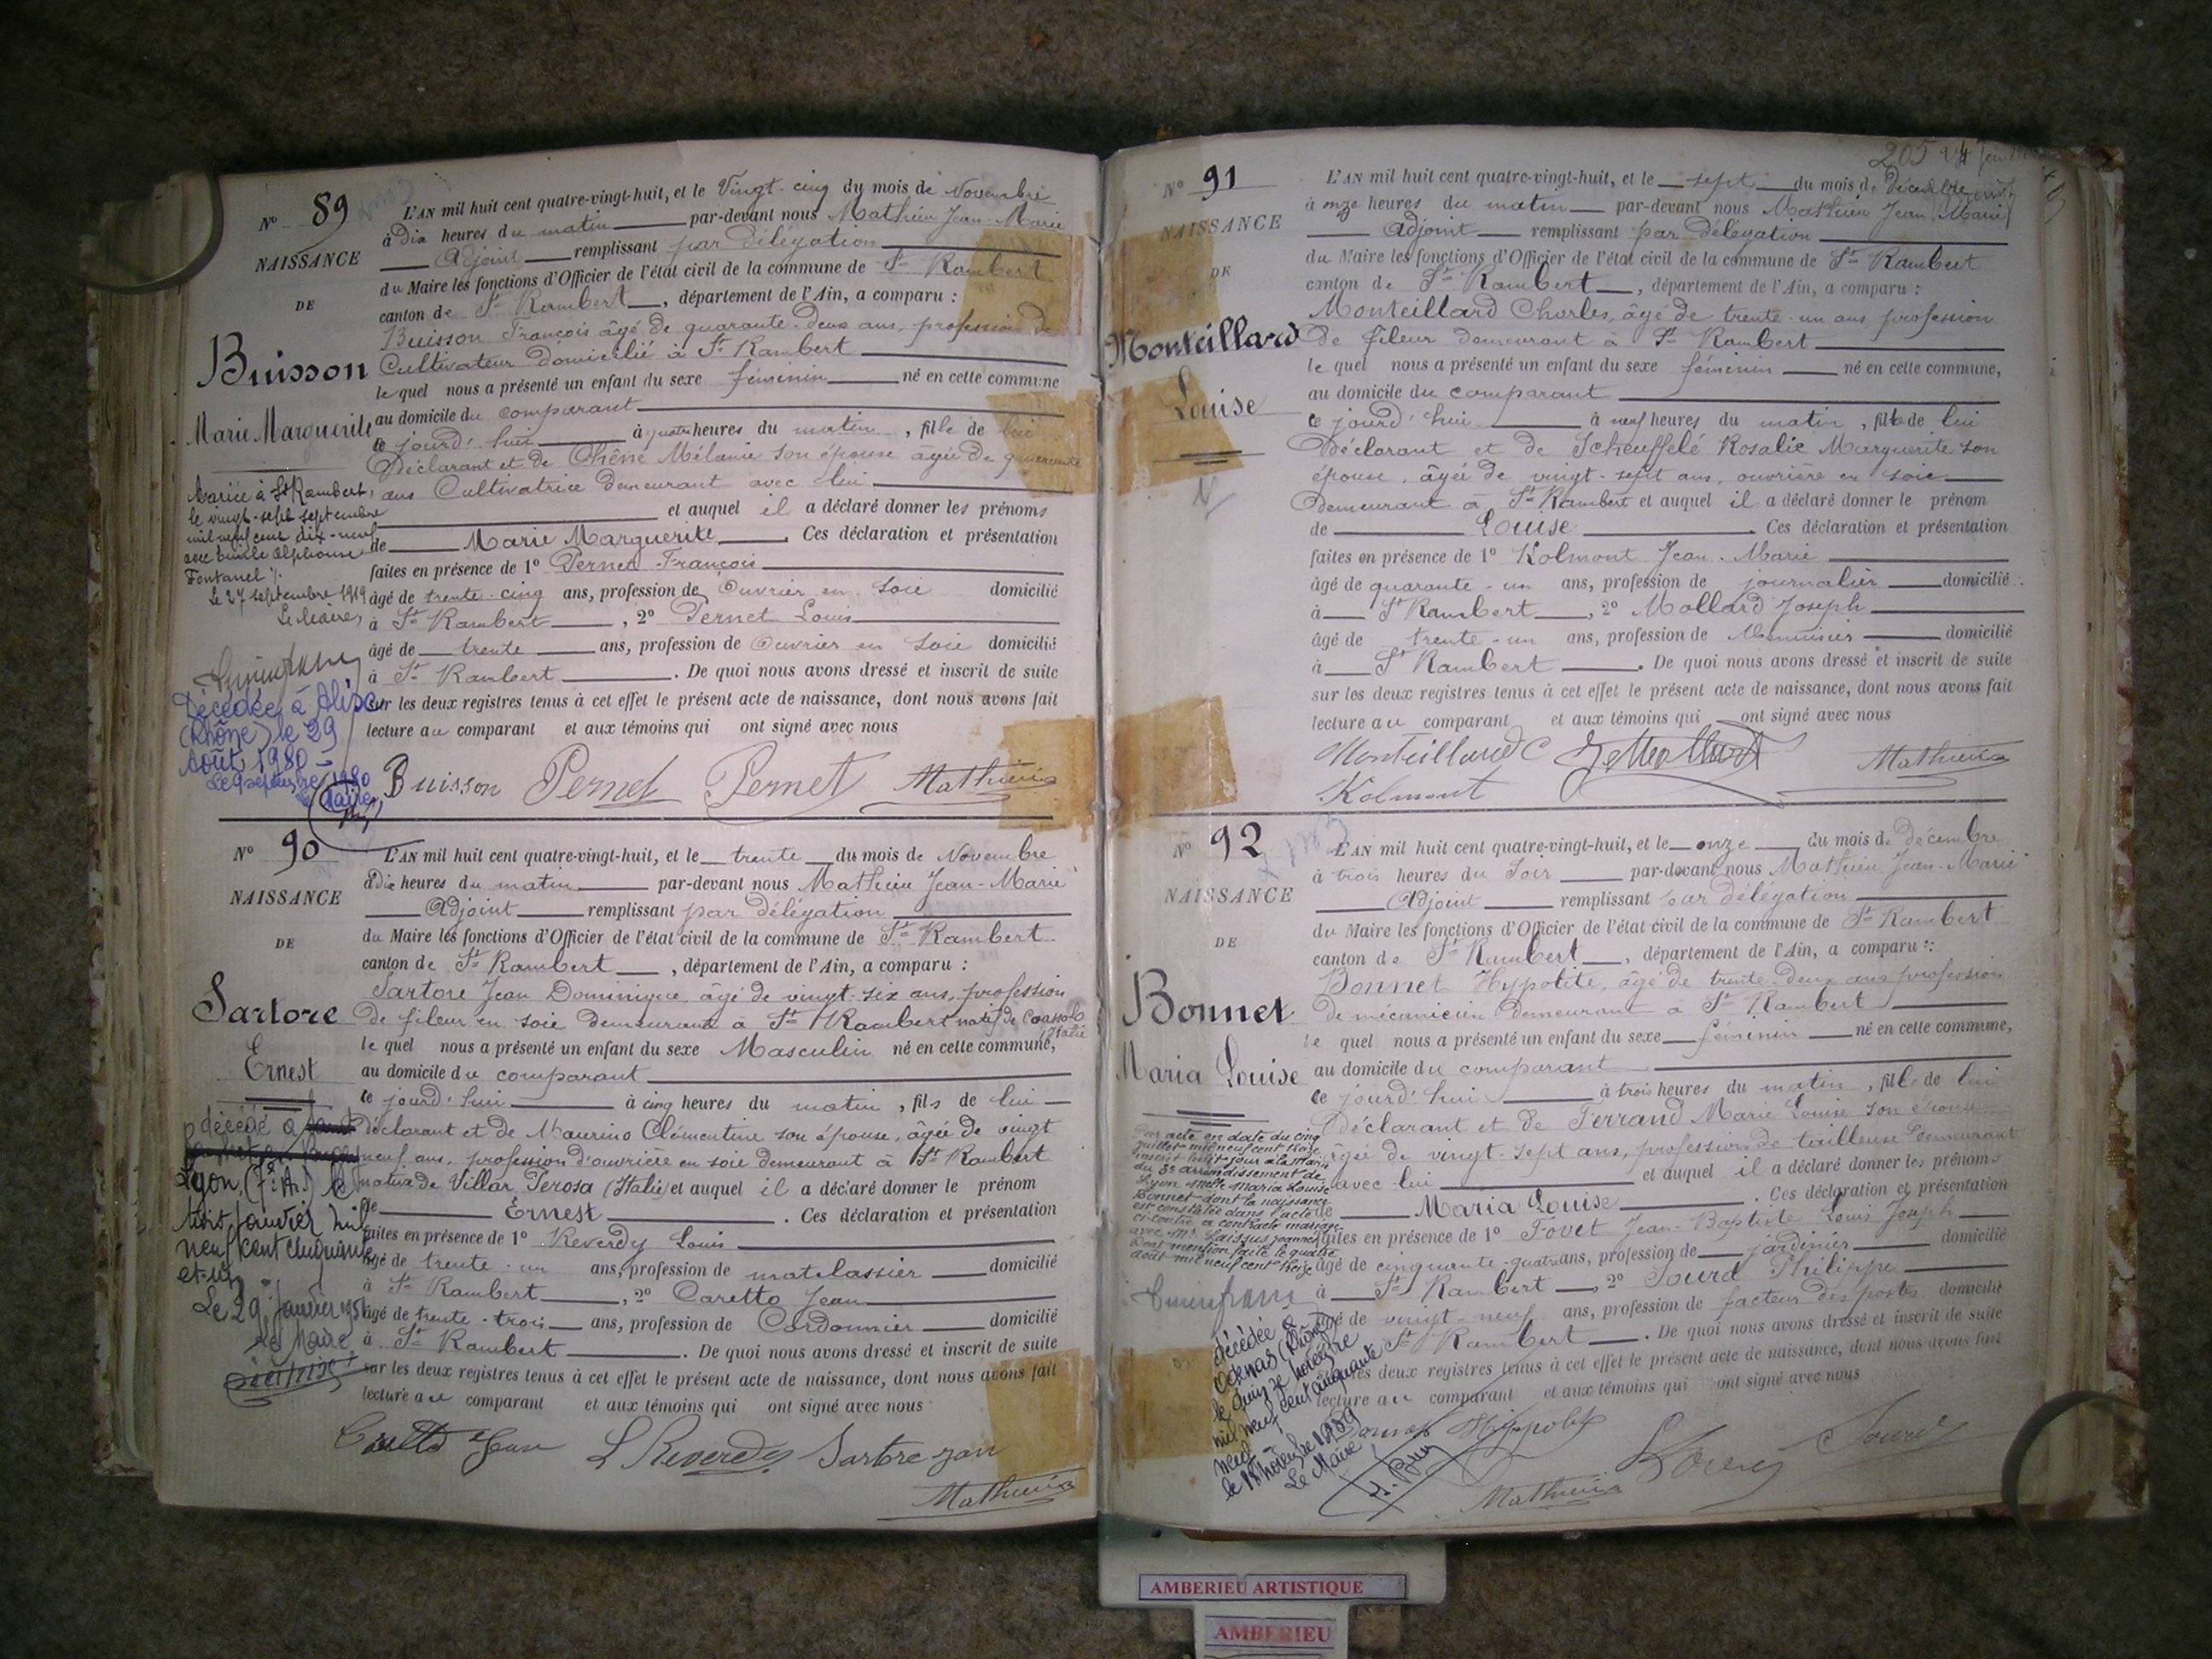 N° 89
NAISSANCE
DE
Buisson
Marie Marguerite
Mariée à St Rambert,
le vingt-sept septembre
mil neuf cent dix-neuf
avec Emile Alphonse
Fontanel
Le 27 septembre 1919
Le Maire,
Décédée à Alix
(Rhône) le 29
Août 1980 –
Le 9 septembre 1980
Le Maire,
L'AN mil huit cent quatre-vingt-huit, et le Vingt-cinq du mois de Novembre
à Dix heures du matin par-devant nous Mathieu Jean-Marie
Adjoint remplissant par délégation
du Maire les fonctions d'Officier de l'état civil de la commune de St Rambert
canton de St Rambert, département de l'Ain, a comparu :
Buisson François âgé de quarante-deux ans, profession de
Cultivateur domicilié à St Rambert
le quel nous a présenté un enfant du sexe féminin né en cette commune
au domicile du comparant
ce jourd'hui à quatre heures du matin, fille de lui
Déclarant et de Chêne Mélanie son épouse âgée de quarante
ans Cultivatrice demeurant avec lui
et auquel il a déclaré donner les prénoms
de Marie Marguerite. Ces déclaration et présentation
faites en présence de 1° Pernet François
âgé de trente-cinq ans, profession de Ouvrier en soie domicilié
à St Rambert, 2° Pernet Louis
âgé de trente ans, profession de Ouvrier en soie domicilié
à St Rambert. De quoi nous avons dressé et inscrit de suite
sur les deux registres tenus à cet effet le présent acte de naissance, dont nous avons fait
lecture au comparant et aux témoins qui ont signé avec nous
Buisson Pernet Pernet Mathieu
N° 90
NAISSANCE
DE
Sartore
Ernest
décédé à
Lyon, (7e Ar.) le
huit janvier mil
neuf cent cinquante
et-un.
Le 29 janvier 1951
Le Maire
L'AN mil huit cent quatre-vingt-huit, et le trente du mois de Novembre
à dix heures du matin par-devant nous Mathieu Jean-Marie
Adjoint remplissant par délégation
du Maire les fonctions d'Officier de l'état civil de la commune de St Rambert
canton de St Rambert, département de l'Ain, a comparu :
Sartore Jean Dominique, âgé de vingt-six ans, profession
de fileur en soie demeurant à St Rambert natif de Coassolo
(Italie)
le quel nous a présenté un enfant du sexe Masculin né en cette commune,
au domicile du comparant
ce jourd'hui à cinq heures du matin, fils de lui
déclarant et de Maurino Clémentine son épouse, âgée de vingt
neuf ans, profession d'ouvrière en soie demeurant à St Rambert
native de Villar Perosa (Italie) et auquel il a déclaré donner le prénom
de Ernest. Ces déclaration et présentation
faites en présence de 1° Reverdy Louis
âgé de trente-un ans, profession de matelassier domicilié
à St Rambert, 2° Caretto Jean
âgé de trente-trois ans, profession de Cordonnier domicilié
à St Rambert. De quoi nous avons dressé et inscrit de suite
sur les deux registres tenus à cet effet le présent acte de naissance, dont nous avons fait
lecture au comparant et aux témoins qui ont signé avec nous
L Reverdy Sartore
Mathieu
205
N° 91
NAISSANCE
DE
Monteillard
Louise
L'AN mil huit cent quatre-vingt-huit, et le sept du mois de décembre
à onze heures du matin par-devant nous Mathieu Jean Marie
Adjoint remplissant par délégation
du Maire les fonctions d'Officier de l'état civil de la commune de St Rambert
canton de St Rambert, département de l'Ain, a comparu :
Monteillard Charles, âgé de trente-un ans, profession
de fileur demeurant à St Rambert
le quel nous a présenté un enfant du sexe féminin né en cette commune,
au domicile du comparant
ce jourd'hui à neuf heures du matin, fille de lui
Déclarant et de Scheuffelé Rosalie Marguerite son
épouse, âgée de vingt-sept ans, ouvrière en soie
demeurant à St Rambert et auquel il a déclaré donner le prénom
de Louise. Ces déclaration et présentation
faites en présence de 1° Kolmont Jean-Marie
âgé de quarante-un ans, profession de journalier domicilié
à St Rambert, 2° Mollard Joseph
âgé de trente-un ans, profession de Menuisier domicilié
à St Rambert. De quoi nous avons dressé et inscrit de suite
sur les deux registres tenus à cet effet le présent acte de naissance, dont nous avons fait
lecture au comparant et aux témoins qui ont signé avec nous
Monteillard C Mathieu
Kolmont
N° 92
NAISSANCE
DE
Bonnet
Maria Louise
Par acte en date du cinq
juillet mil neuf cent treize
inscrit le dit jour à la Mairie
du 3e arrondissement de
Lyon Melle Maria Louise
Bonnet dont la naissance
est constatée dans l'acte
ci-contre, a contracté mariage
avec Mr. Laissus Joannès
Dont mention faite le quatre
août mil neuf cent treize
Décédée à
Odenas (Rhône)
le quinze novembre
mil neuf cent cinquante
neuf –
le 18 novembre 1959
Le Maire
L'AN mil huit cent quatre-vingt-huit, et le onze du mois de décembre
à trois heures du soir par-devant nous Mathieu Jean-Marie
Adjoint remplissant par délégation
du Maire les fonctions d'Officier de l'état civil de la commune de St Rambert
canton de St Rambert, département de l'Ain, a comparu :
Bonnet Hypolite, âgé de trente-deux ans profession
de mécanicien demeurant à St Rambert
le quel nous a présenté un enfant du sexe féminin né en cette commune,
au domicile du comparant
ce jourd'hui à trois heures du matin, fille de lui
Déclarant et de Ferrand Marie Louise son épouse
âgée de vingt-sept ans, profession de tailleuse demeurant
avec lui et auquel il a déclaré donner les prénoms
de Maria Louise. Ces déclaration et présentation
faites en présence de 1° Fovet Jean-Baptiste Louis Joseph
âgé de cinquante-quatre ans, profession de jardinier domicilié
à St Rambert, 2° Sourd Philippe
âgé de vingt-neuf ans, profession de facteur des postes domicilié
à St Rambert. De quoi nous avons dressé et inscrit de suite
sur les deux registres tenus à cet effet le présent acte de naissance, dont nous avons fait
lecture au comparant et aux témoins qui ont signé avec nous
Bonnet Hippolyte Sourd
Mathieu
AMBERIEU ARTISTIQUE
AMBERIEU